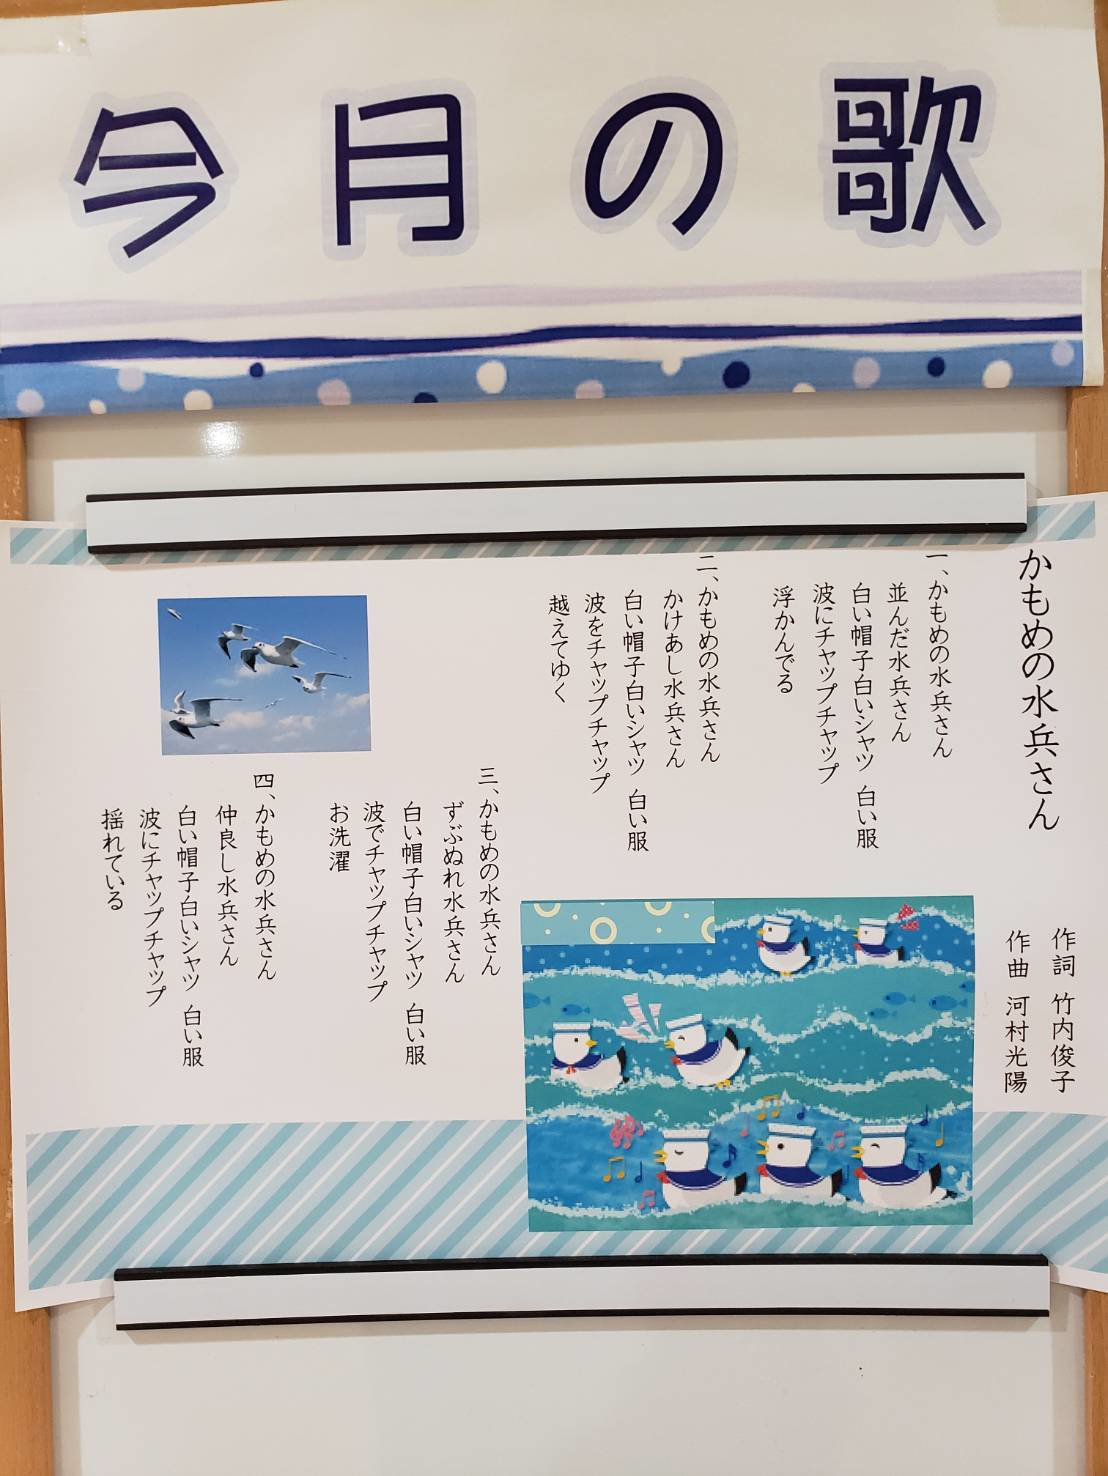 今月の歌
かもめの水兵さん
作詞 竹内俊子
作曲 河村光陽
一、かもめの水兵さん
並んだ水兵さん
白い帽子白いシャツ 白い服
波にチャップチャップ
浮かんでる
二、かもめの水兵さん
かけあし水兵さん
白い帽子白いシャツ 白い服
波をチャップチャップ
越えてゆく
三、かもめの水兵さん
ずぶぬれ水兵さん
白い帽子白いシャツ 白い服
波でチャップチャップ
お洗濯
四、かもめの水兵さん
仲良し水兵さん
白い帽子白いシャツ 白い服
波にチャップチャップ
揺れている